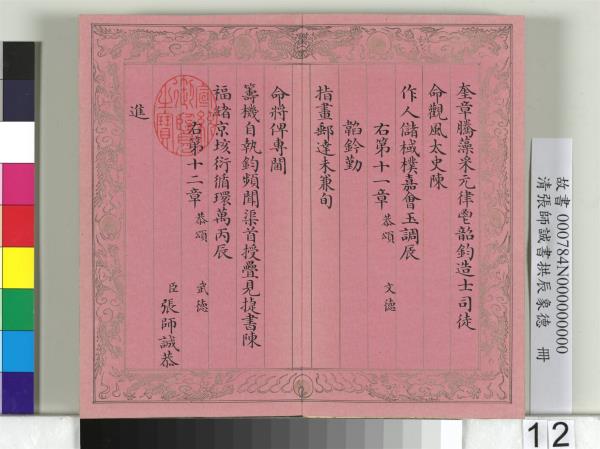 奎章騰藻采元律鬯韶鈞造士司徒
命觀風太史陳
作人儲棫樸嘉會玉調辰
右第十一章 恭頌 文德
韜鈐勤
指畫郵達未兼旬
命將俾專閫
籌機自執鈞頻聞渠首授疊見捷書陳
福緒京垓衍循環萬丙辰
右第十二章 恭頌 武德
臣張師誠恭
進
宣統御覽之寶
故書 000784N000000000
清張師誠書拱辰象德 冊
12